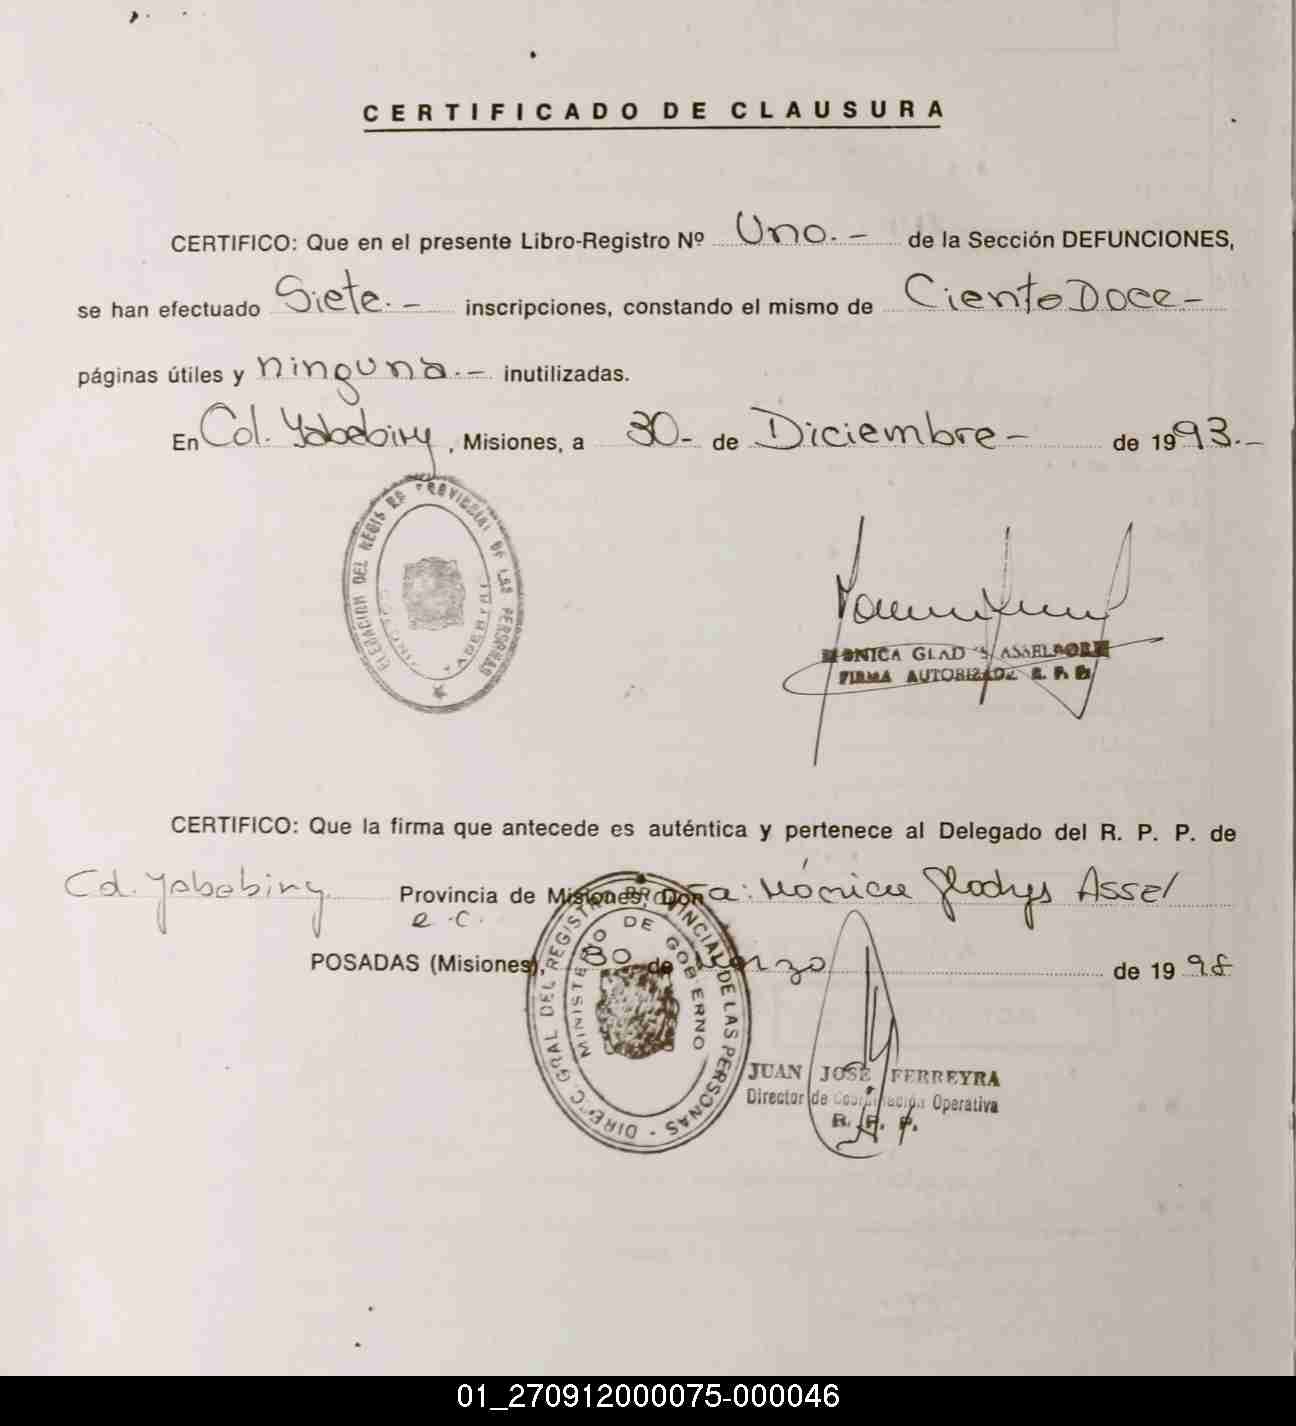 CERTIFICADO DE CLAUSURA
CERTIFICO: Que en el presente Libro-Registro Nº Uno.- de la Sección DEFUNCIONES,
se han efectuado Siete.- inscripciones, constando el mismo de Ciento Doce-
páginas útiles y ninguna.- inutilizadas.
En Col. Yabebiry, Misiones, a 30- de Diciembre- de 1993.-
DEL REGIS PROVINCIAL DE LAS PERSONAS
MONICA GLAD S ASSEL
FIRMA AUTORIZADA R. P. P.
CERTIFICO: Que la firma que antecede es auténtica y pertenece al Delegado del R. P. P. de
Col. Yabebiry Provincia de Misiones, Doña: Mónica Gladys Assel
e.c.
POSADAS (Misiones), 30 de Marzo de 1998
DIRECC. GRAL DEL REGISTRO PROVINCIAL DE LAS PERSONAS -
MINISTERIO DE GOBIERNO
JUAN JOSE FERREYRA
Director de Coordinación Operativa
R. P. P.
01_270912000075-000046